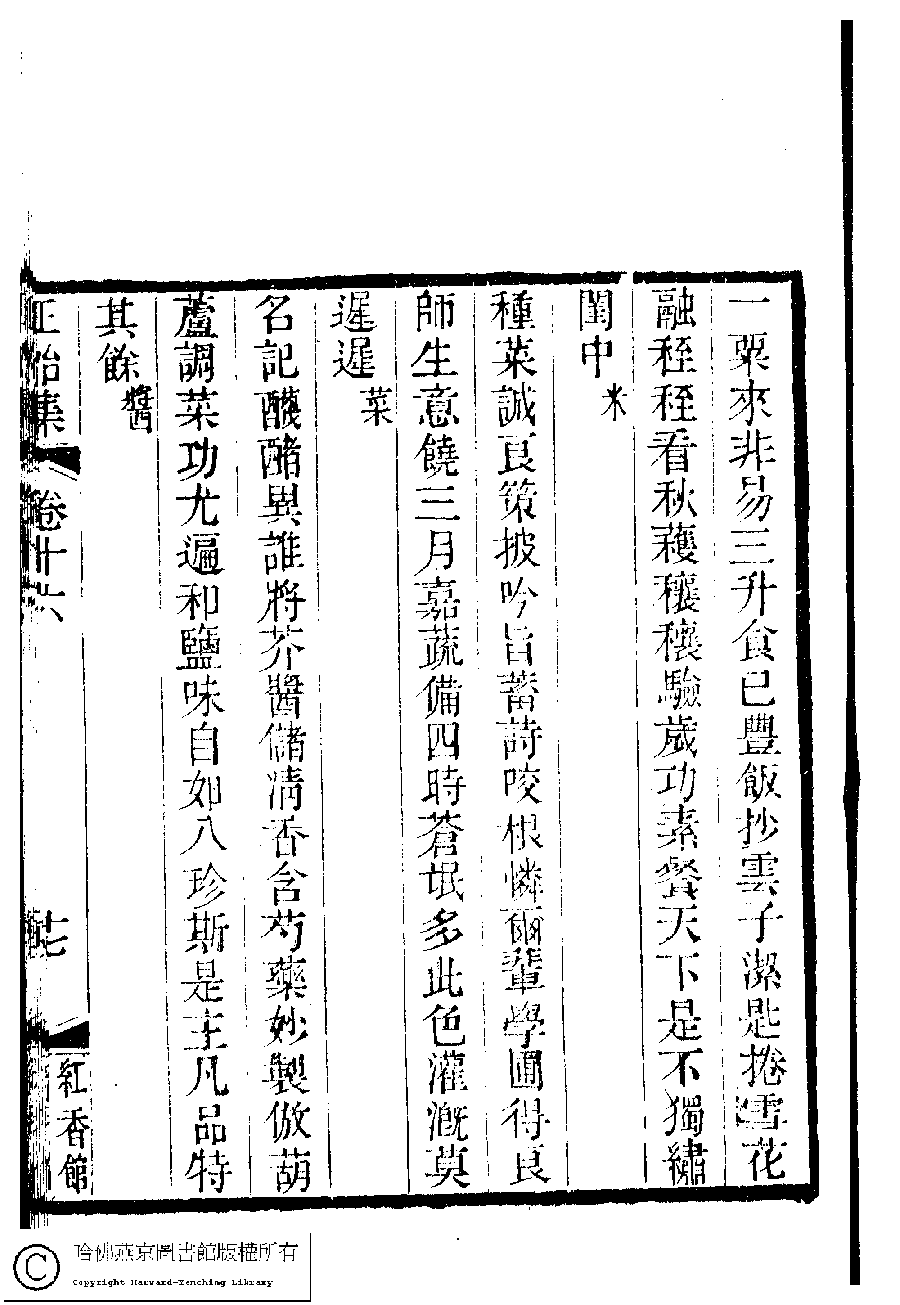 一粟來非易三升食已豐飯抄雲子潔匙捲雪花
融秷秷看秋穫穰穰驗歲功素餐天下是不獨繡
閨中米
種菜誠良策披吟旨蓄詩咬根憐爾輩學圃得良
師生意饒三月嘉蔬備四時蒼氓多此色灌漑莫
遲遲菜
名記醲醏異誰將芥醬儲淸香含芍藥妙製倣葫
蘆調菜功尤遍和鹽味自如八珍斯是主凡品特
其餘醬
正始集 卷廿六 十七 紅香館
哈佛燕京圖書館版權所有
Copyright Harvard-Yenching Library